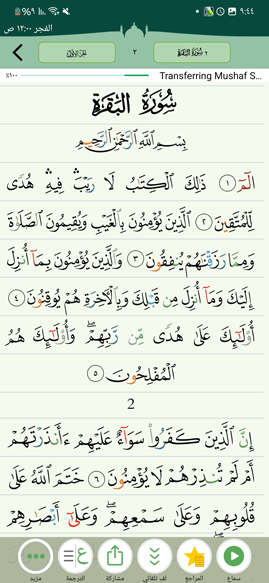 ٩:٤٤
٩٦%
الفجر ١٢:٠٠ ص
٢ سُورَةُ البَقَرَةِ
٢
الجزء الأول
Transferring Mushaf S...
١٠٠٪
سُورَةُ الْبَقَرَةِ
بِسْمِ اللَّهِ الرَّحْمَٰنِ الرَّحِيمِ
الٓمٓ ١ ذَٰلِكَ الْكِتَٰبُ لَا رَيْبَ ۛ فِيهِ ۛ هُدًى
لِّلْمُتَّقِينَ ٢ الَّذِينَ يُؤْمِنُونَ بِالْغَيْبِ وَيُقِيمُونَ الصَّلَوٰةَ
وَمِمَّا رَزَقْنَٰهُمْ يُنفِقُونَ ٣ وَالَّذِينَ يُؤْمِنُونَ بِمَآ أُنزِلَ
إِلَيْكَ وَمَآ أُنزِلَ مِن قَبْلِكَ وَبِالْآخِرَةِ هُمْ يُوقِنُونَ ٤
أُو۟لَٰٓئِكَ عَلَىٰ هُدًى مِّن رَّبِّهِمْ ۖ وَأُو۟لَٰٓئِكَ هُمُ
الْمُفْلِحُونَ ٥
2
إِنَّ الَّذِينَ كَفَرُوا۟ سَوَآءٌ عَلَيْهِمْ ءَأَنذَرْتَهُمْ
أَمْ لَمْ تُنذِرْهُمْ لَا يُؤْمِنُونَ ٦ خَتَمَ اللَّهُ عَلَىٰ
قُلُوبِهِمْ وَعَلَىٰ سَمْعِهِمْ ۖ وَعَلَىٰٓ أَبْصَٰرِهِمْ
سماع
المراجع
لف تلقائي
مشاركة
الترجمة
مزيد